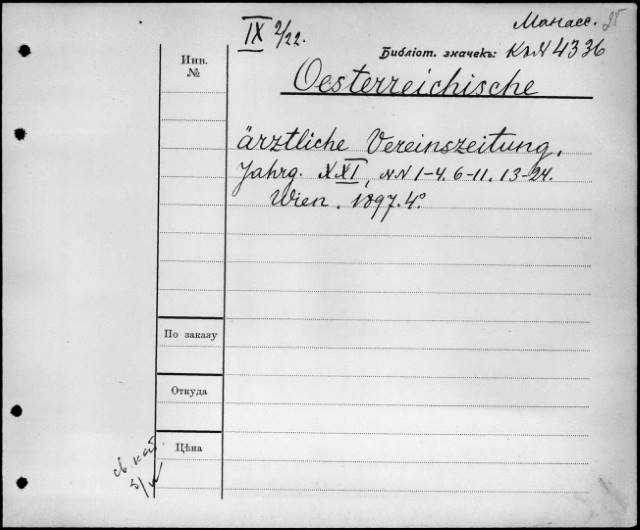 IX 2/22.
Манасс.
Библіот. значекъ: КлN 4336
Инв.
№
Oesterreichische
ärztliche Vereinszeitung.
Jahrg. XXI, NN 1-4. 6-11. 13-24.
Wien. 1897. 4°
По заказу
Откуда
Цѣна
св. кат.